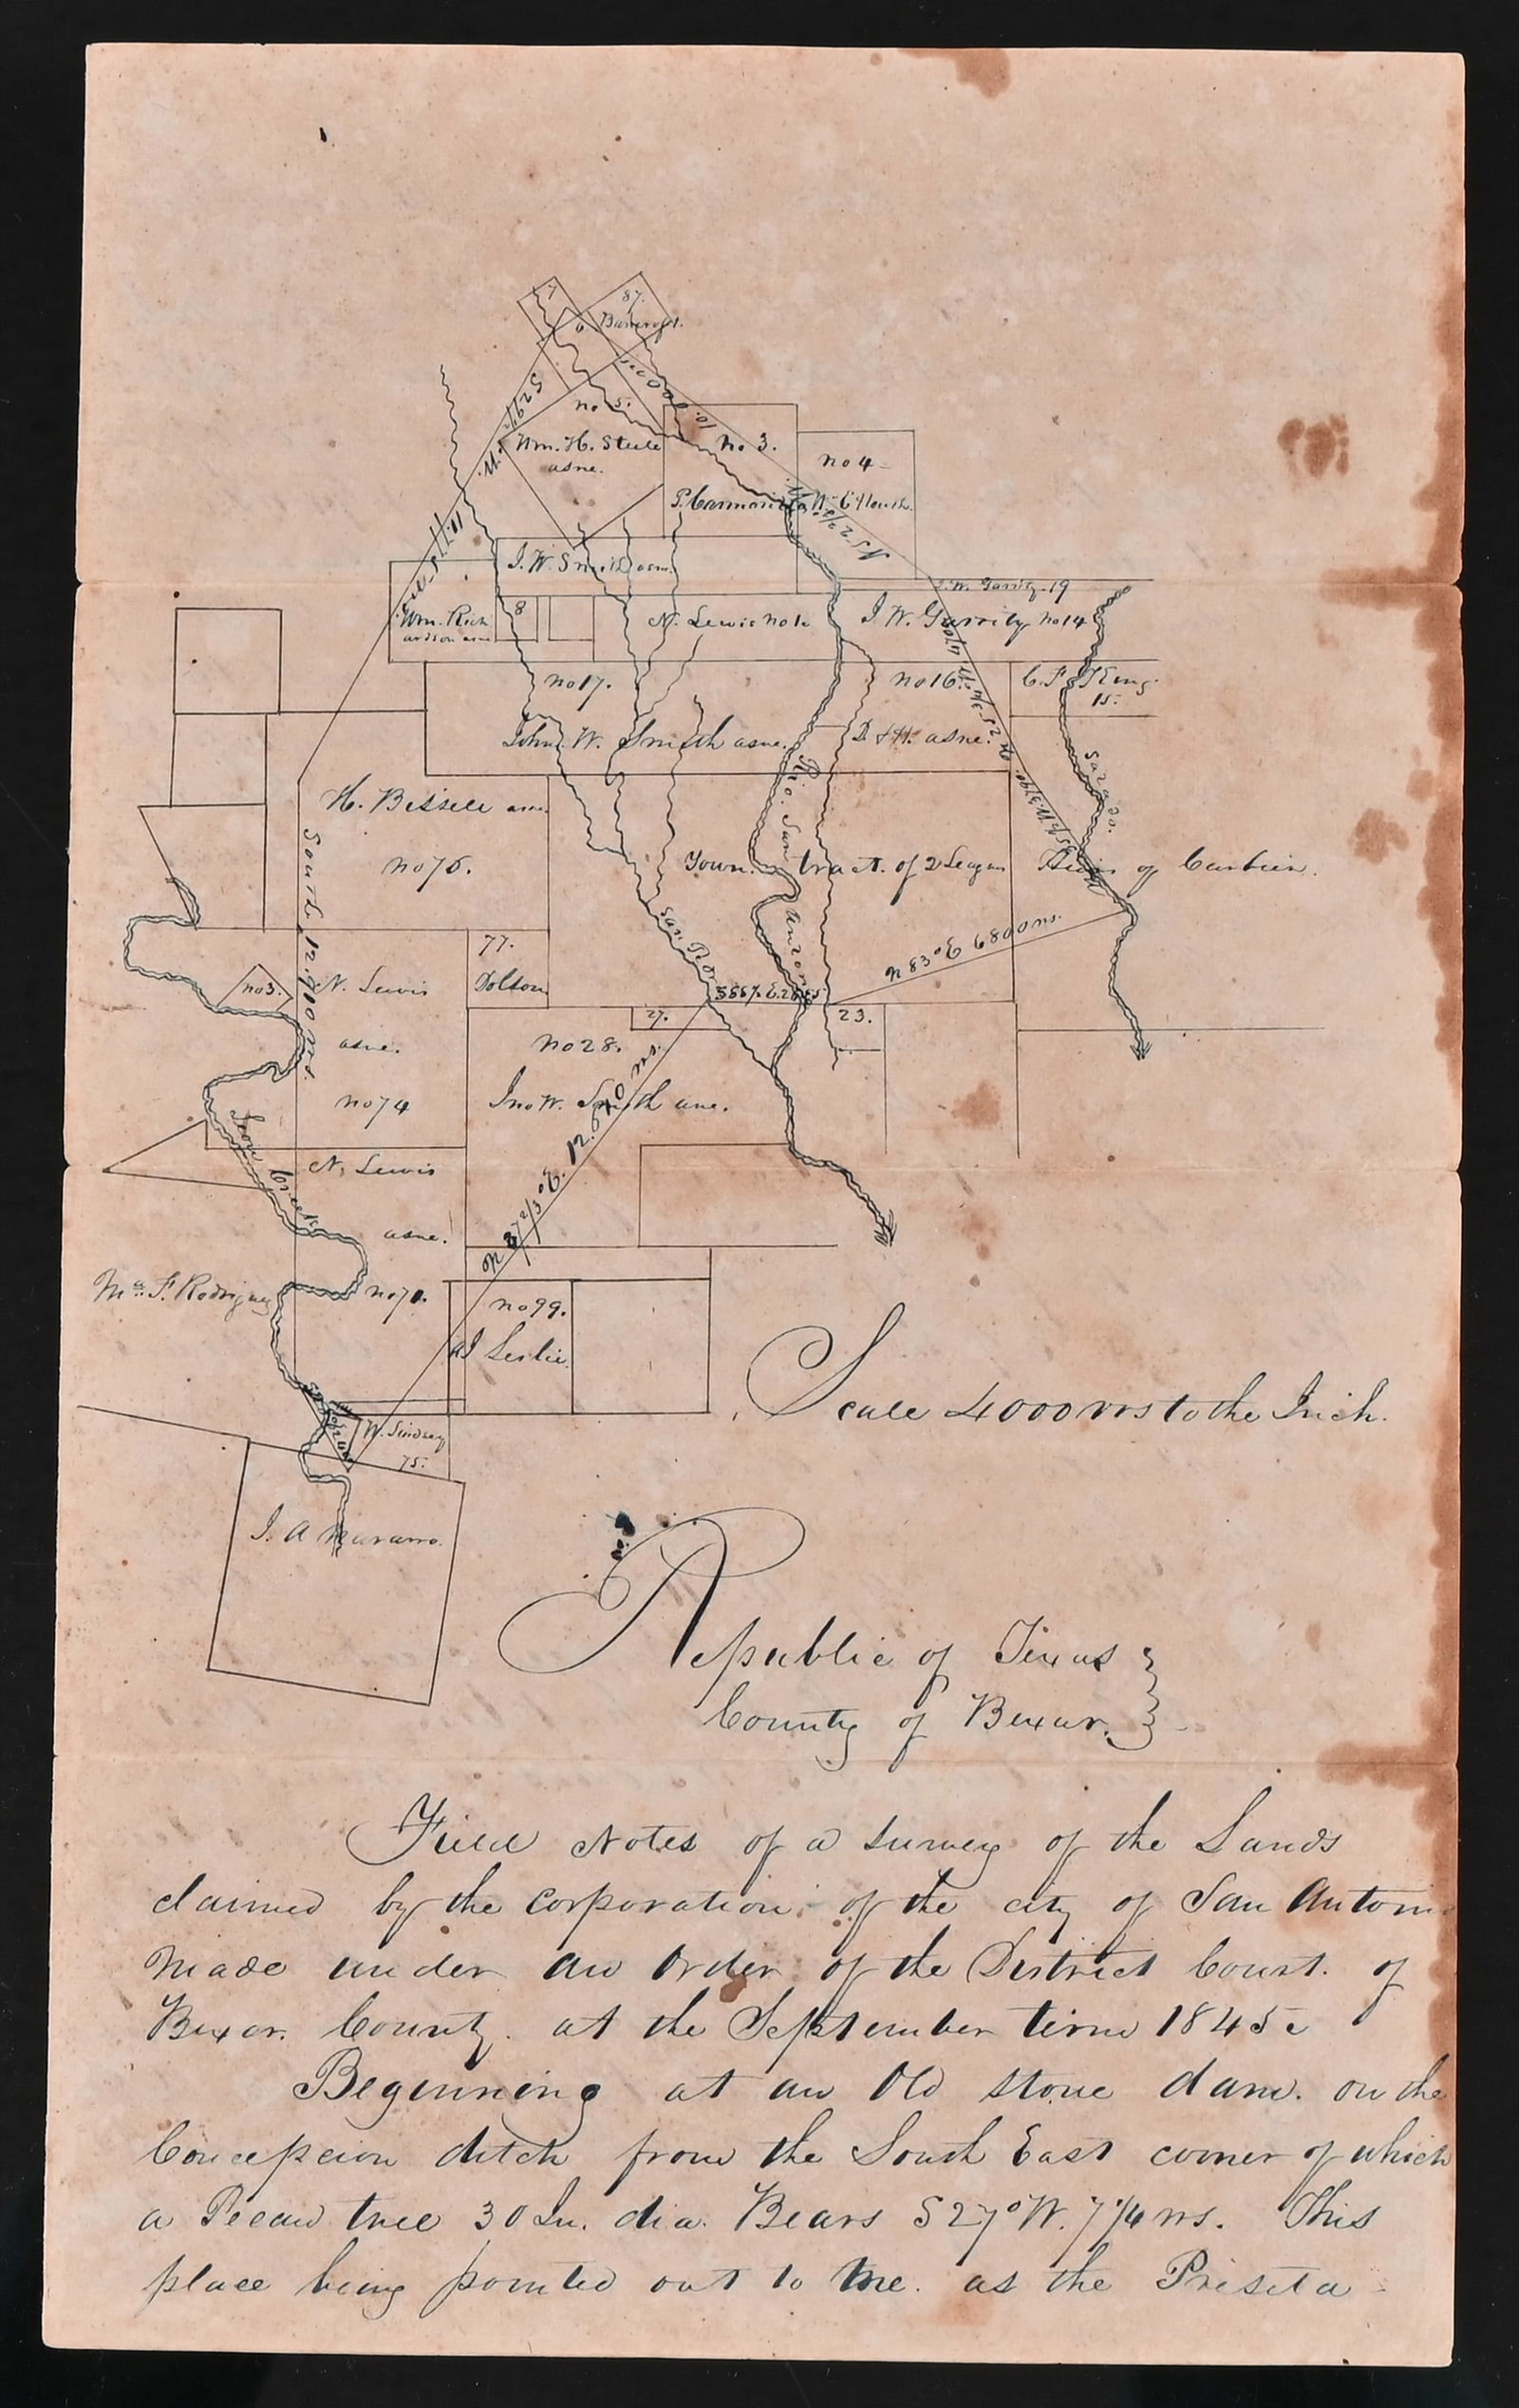 7
87.
Bancroft.
6
S 29½
W.
10.000
no 5.
Wm. H. Steele
asne.
no 3.
no 4
J. W. Smith asne.
N 52½°
J. W. Garrity 19
Wm. Rich
ardson asne
8
N. Lewis no
J. W. Garrity no 14
no 17.
no 16.
C. F. King.
15.
John W. Smith asne.
D. & H. asne.
Salado.
H. Bissell asne.
no 76.
South 12.900 vrs.
Rio San Antonio
Town tract of 2 Leagues
Heirs of
77.
Dolson
San Pedro
N 83° E 6800 vrs.
no 3.
N. Lewis
asne.
no 74
27.
23.
no 28.
Jno W. Smith asne.
Leon Creek
N. Lewis
asne.
no 70.
Ma. F. Rodriguez
no 99.
AJ Leslie.
Scale 4000 vrs to the Inch.
W. Lindsay
75.
J. A Navarro.
Republic of Texas
County of Bexar.
Field Notes of a survey of the Lands
claimed by the corporation of the city of San Antonio
made under an order of the District Court. of
Bexar. County. at the September term 1845
Beginning at an Old stone dam. on the
Concepcion ditch from the South East corner of which
a Pecan tree 30 In. dia. Bears S 27° W. 7¼ vrs. This
place being pointed out to me. as the Preseta